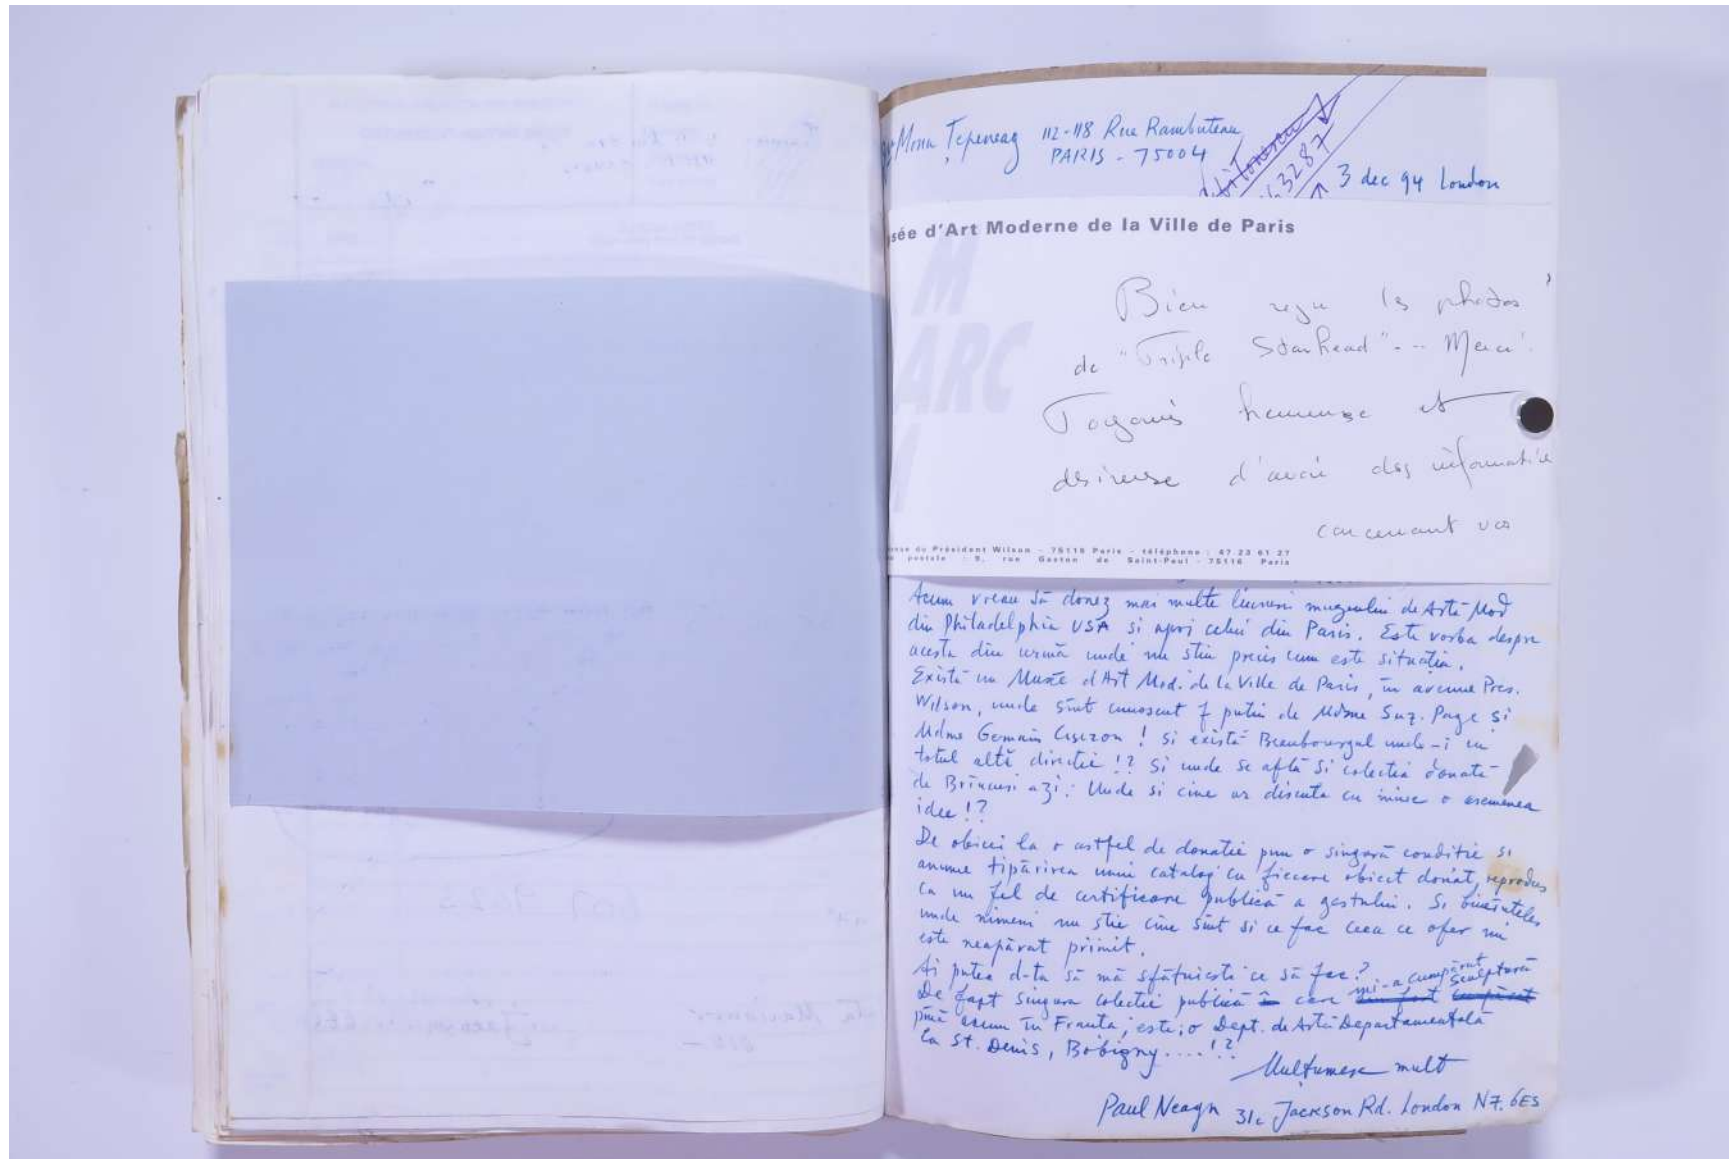 Mona Țepeneag 112-118 Rue Rambuteau
PARIS - 75004
3287
3 dec 94 London
sée d'Art Moderne de la Ville de Paris
M
ARC
Bien reçu les photos
de "Triple Starhead" -- Merci!
Toujours heureuse et
désireuse d'avoir des informations
concernant vos
du Président Wilson - 75116 Paris - téléphone : 47 23 61 27
postale : 9, rue Gaston de Saint-Paul - 75116 Paris
Acum vreau să donez mai multe lucrări muzeului de Artă Mod
din Philadelphia USA si apoi celui din Paris. Este vorba despre
acesta din urmă unde nu stiu precis cum este situatia.
Există un Musée d'Art Mod. de la Ville de Paris, în avenue Pres.
Wilson, unde sînt cunoscut f putin de Mdme Suz. Page si
Mdme Germain ! Si există Beaubourgul unde-i cu
totul altă directie !? Si unde se află si colectia donată
de Brîncusi azi. Unde si cine ar discuta cu mine o asemenea
idee !?
De obicei la o astfel de donatie pun o singură conditie si
anume tipărirea unui catalog cu fiecare obiect donat, reprodus
ca un fel de certificare publică a gestului. Si bineînteles
unde nimeni nu stie cine sînt si ce fac ceea ce ofer nu
este neapărat primit.
Ai putea d-ta să mă sfătuiesti ce să fac?
De fapt singura colectie publică care mi-a cumpărat sculptură
pînă acum în Franta, este; o Dept. de Artă Departamentală
la St. Denis, Bobigny....!?
Mulțumesc mult
Paul Neagu 31c Jackson Rd. London N7. 6ES